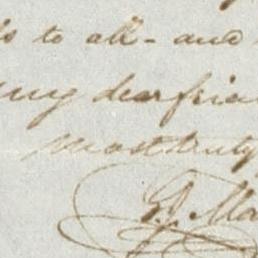 to all - and
my dear frien
most truly